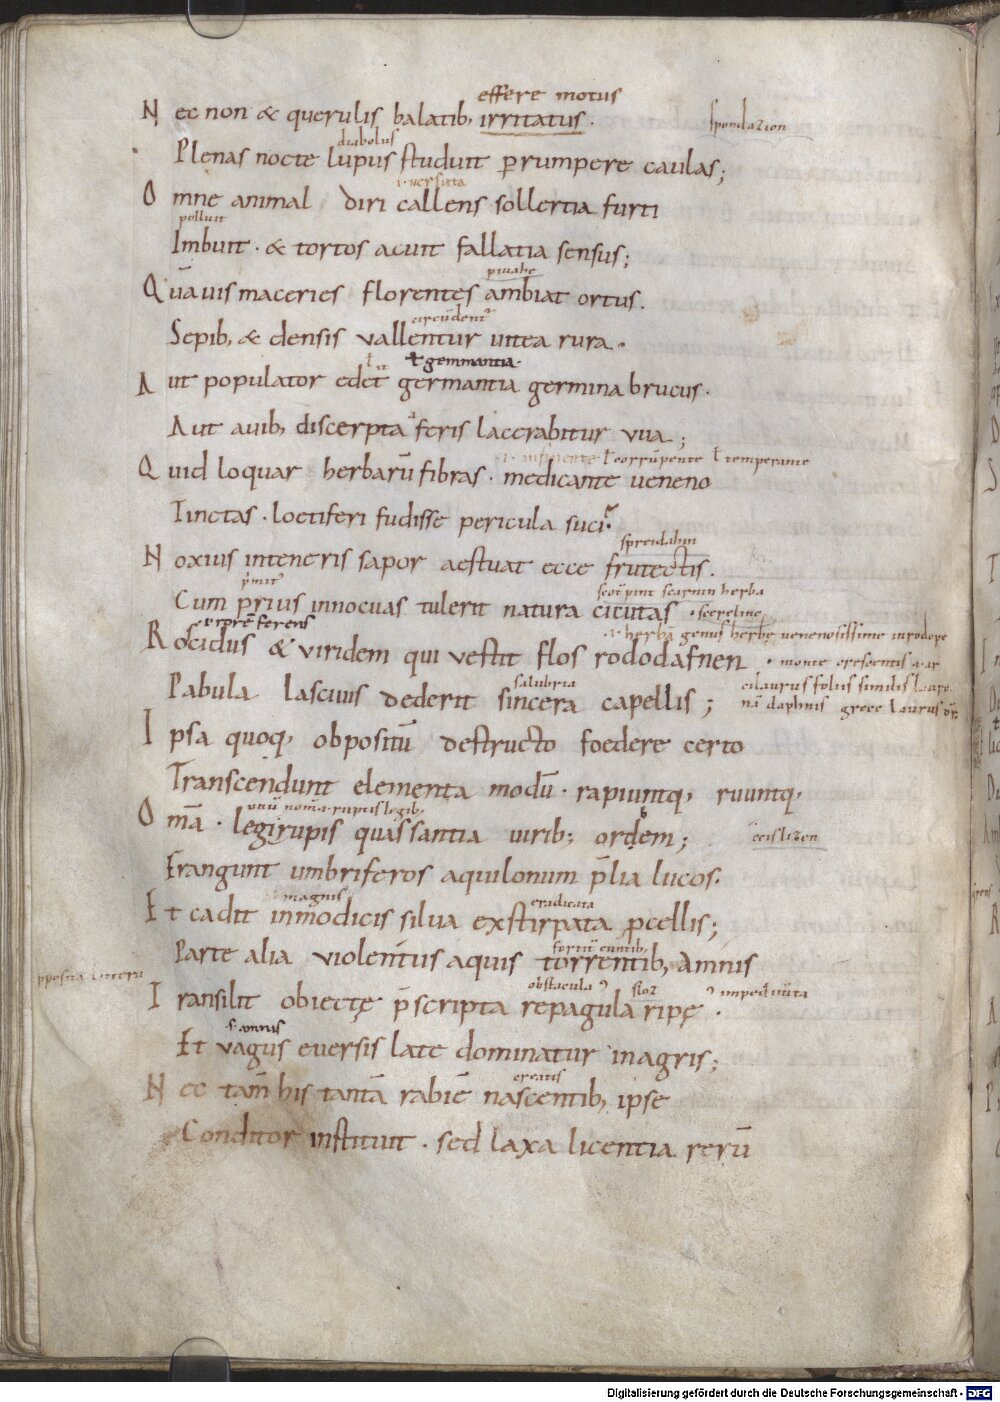 effere motus
N ec non & querulis balatib, irritatus . spondazon
diabolus
Plenas nocte lupus studuit prumpere caulas;
.i. versutia
O mne animal diri callens sollertia furti
polluit
Imbuit . & tortos acuit fallatia sensus;
Q uāuis maceries florentes ambiat ortus.
circūdent᷑
Sepib, & densis vallentur uitea rura .
ł gemmantia.
A ut populator edet germantia germina brucus .
Aut auib, discerpta feris lacerabitur uua ;
ł corrūpente ł temperante
Q uid loquar herbarū fibras . medicante ueneno
Tinctas . loetiferi fudisse pericula suci.
N oxius inteneris sapor aestuat ecce frutectis .
herba
Cum prius innocuas tulerit natura cicutas
ferens
.i. herbā genus herbę uenenosissime inrodope
R oscidus & viridem qui vestit flos rododafnen . monte crescentis
salubria
laurus foliis similis lauro
Pabula lascivis dederit sincera capellis ; nā daphnis grece laurus
I psa quoq, obpositū destructo foedere certo
Transcendunt elementa modū . rapiuntq, ruuntq,
ruptis legib,
O mā . legirupis quassantia uirib; ordem; ecislizon
Frangunt umbriferos aquilonum p̄lia lucos.
magnis eradicata
E t cadit inmodicis silua exstirpata pcellis;
Parte alia violentus aquis torrentib, Amnis
pposita littera
obstacula
T ransilit obiectę p̄scripta repagula ripę .
.s. amnis
Et vagus euersis late dominatur inagris;
creatis
N ec tam̄ his tantā rabiē nascentib, ipse
Conditor instituit . sed laxa licentia rerū
Digitalisierung gefördert durch die Deutsche Forschungsgemeinschaft - DFG